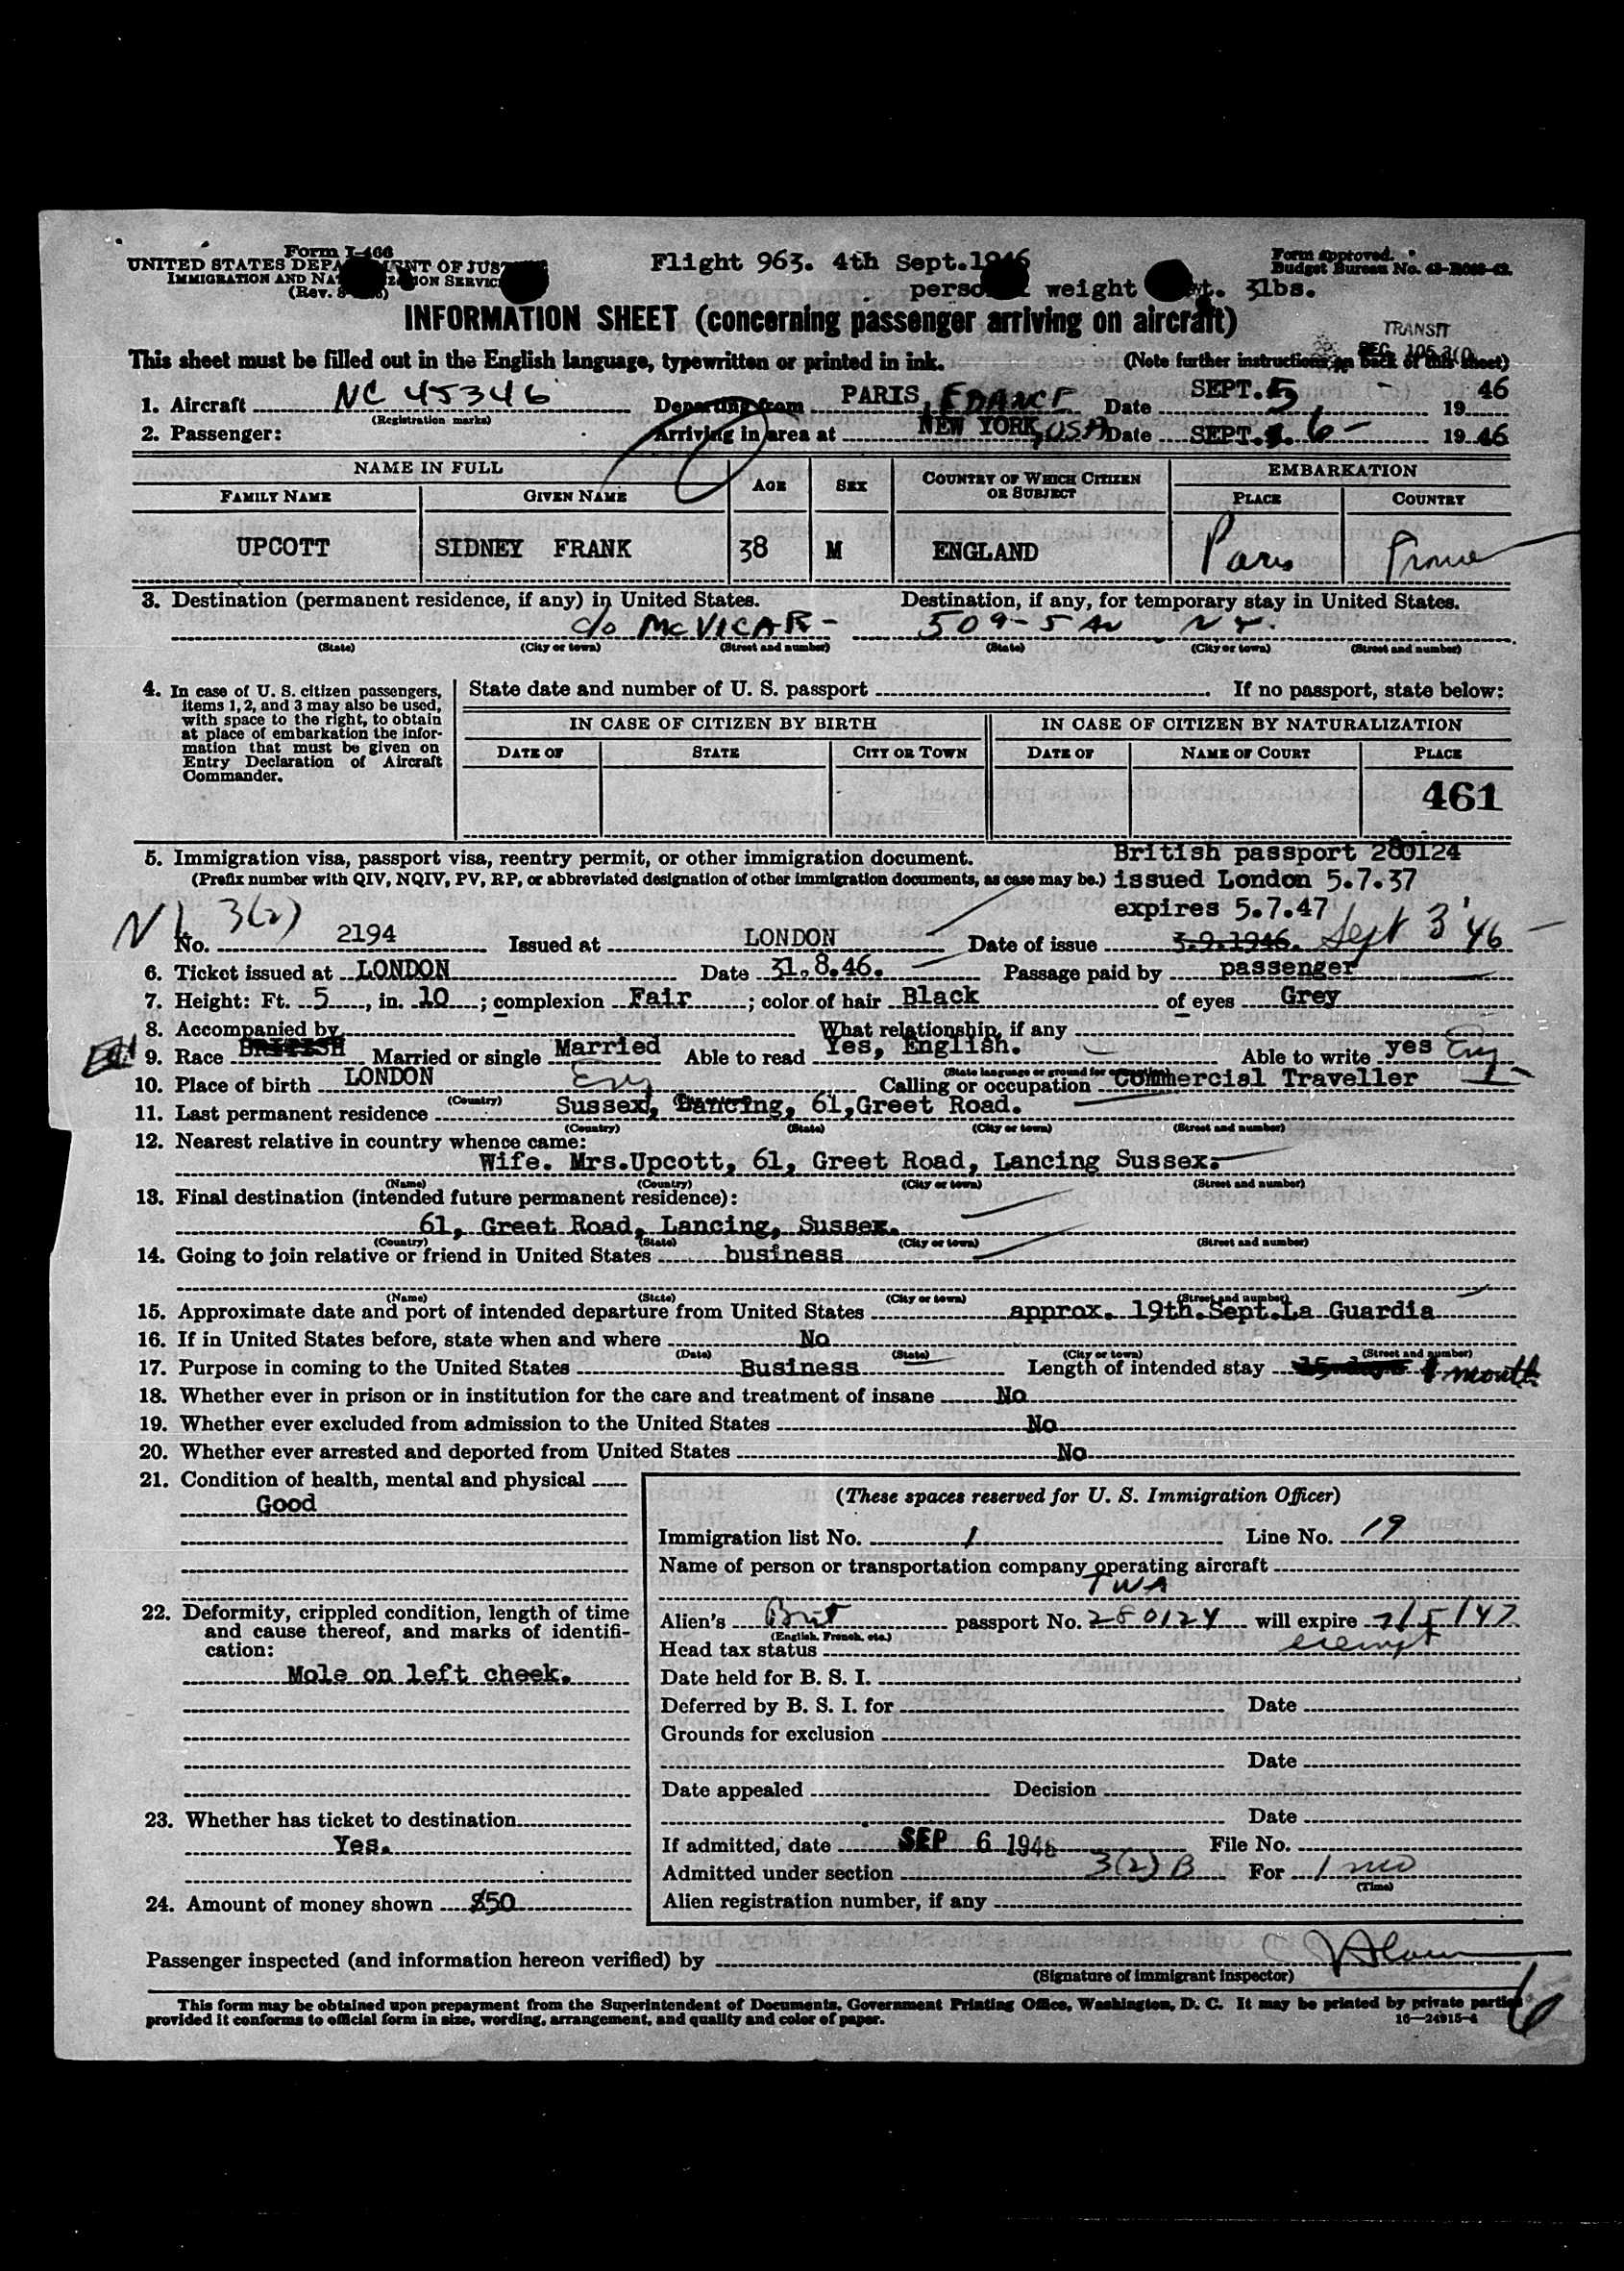 Form I-466
UNITED STATES DEPARTMENT OF JUSTICE
IMMIGRATION AND NATURALIZATION SERVICE
(Rev.
Flight 963. 4th Sept.1946
personal weight 3lbs.
Form approved.
Budget Bureau No.
INFORMATION SHEET (concerning passenger arriving on aircraft)
TRANSIT
This sheet must be filled out in the English language, typewritten or printed in ink. (Note further instructions on back of this sheet)
1. Aircraft NC 45346 Departing from PARIS, FRANCE Date SEPT. 5 - 1946
(Registration marks)
2. Passenger: Arriving in area at NEW YORK, USA Date SEPT. 6 - 1946
NAME IN FULL AGE SEX COUNTRY OF WHICH CITIZEN OR SUBJECT EMBARKATION
FAMILY NAME GIVEN NAME PLACE COUNTRY
UPCOTT SIDNEY FRANK 38 M ENGLAND Paris France
3. Destination (permanent residence, if any) in United States. Destination, if any, for temporary stay in United States.
c/o McVICAR - 509-5 Av NY.
(State) (City or town) (Street and number) (State) (City or town) (Street and number)
4. In case of U. S. citizen passengers, items 1, 2, and 3 may also be used, with space to the right, to obtain at place of embarkation the information that must be given on Entry Declaration of Aircraft Commander.
State date and number of U. S. passport If no passport, state below:
IN CASE OF CITIZEN BY BIRTH IN CASE OF CITIZEN BY NATURALIZATION
DATE OF STATE CITY OR TOWN DATE OF NAME OF COURT PLACE
461
5. Immigration visa, passport visa, reentry permit, or other immigration document. British passport 280124
(Prefix number with QIV, NQIV, PV, RP, or abbreviated designation of other immigration documents, as case may be.) issued London 5.7.37
expires 5.7.47
3(2)
No. 2194 Issued at LONDON Date of issue 3.9.1946. Sept 3 '46
6. Ticket issued at LONDON Date 31.8.46. Passage paid by passenger
7. Height: Ft. 5, in. 10; complexion Fair; color of hair Black of eyes Grey
8. Accompanied by What relationship, if any
9. Race BRITISH Married or single Married Able to read Yes, English. Able to write yes Eng
(State language or ground for exemption)
10. Place of birth LONDON Eng Calling or occupation Commercial Traveller
(Country)
11. Last permanent residence Sussex, Lancing, 61, Greet Road.
(Country) (State) (City or town) (Street and number)
12. Nearest relative in country whence came:
Wife. Mrs.Upcott, 61, Greet Road, Lancing Sussex.
(Name) (Country) (City or town) (Street and number)
13. Final destination (intended future permanent residence):
61, Greet Road, Lancing, Sussex.
(Country) (State) (City or town) (Street and number)
14. Going to join relative or friend in United States business
(Name) (State) (City or town) (Street and number)
15. Approximate date and port of intended departure from United States approx. 19th.Sept.La Guardia
16. If in United States before, state when and where No
(Date) (State) (City or town) (Street and number)
17. Purpose in coming to the United States Business Length of intended stay 1 month
18. Whether ever in prison or in institution for the care and treatment of insane No
19. Whether ever excluded from admission to the United States No
20. Whether ever arrested and deported from United States No
21. Condition of health, mental and physical
Good
22. Deformity, crippled condition, length of time and cause thereof, and marks of identification:
Mole on left cheek.
23. Whether has ticket to destination
Yes.
24. Amount of money shown $50
(These spaces reserved for U. S. Immigration Officer)
Immigration list No. 1 Line No. 19
Name of person or transportation company operating aircraft
TWA
Alien's Brit passport No. 280124 will expire 7/5/47
(English, French, etc.)
Head tax status exempt
Date held for B. S. I.
Deferred by B. S. I. for Date
Grounds for exclusion
Date
Date appealed Decision
Date
If admitted, date SEP 6 1946 File No.
Admitted under section 3(2) B For 1 mo
(Time)
Alien registration number, if any
Passenger inspected (and information hereon verified) by
(Signature of immigrant inspector)
This form may be obtained upon prepayment from the Superintendent of Documents, Government Printing Office, Washington, D. C. It may be printed by private parties
provided it conforms to official form in size, wording, arrangement, and quality and color of paper. 16—24915-4
6